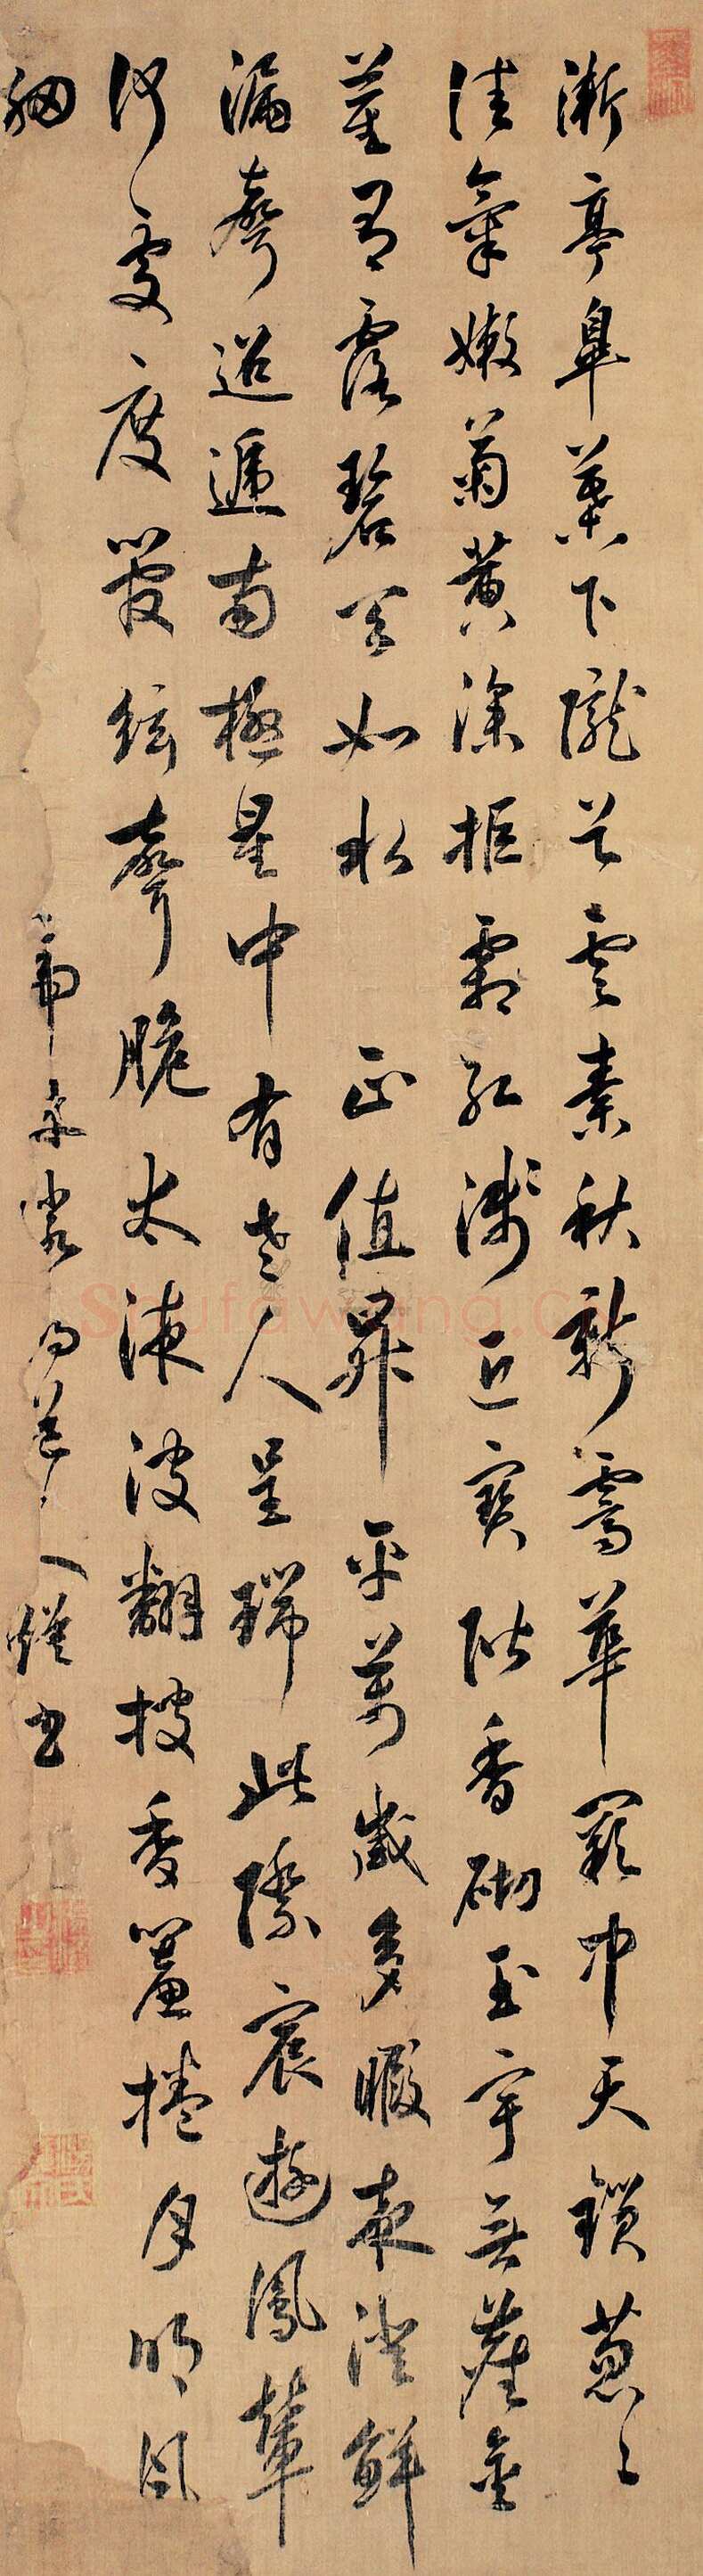 漸亭皋葉下隴首雲素秋新霽華闕中天鎖蔥〻
佳氣嫩菊黃深拒霜紅淺近寶階香砌玉宇無塵金
莖有露碧天如水 正值昇平萬幾多暇夜澄鮮
漏聲迢遞南極星中有老人呈瑞此際宸遊鳳輦
何處度管絃聲脆太液波翻披香簾捲月明風
細
書